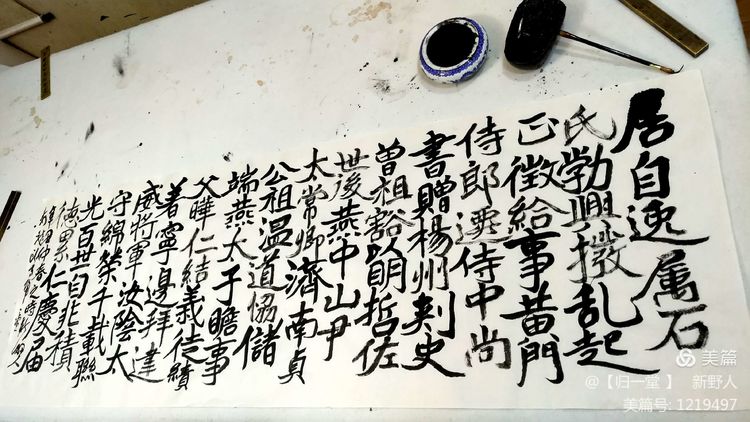 居自逸属石
氏勃興撥乱起
正徵給事黄門
侍郎遷侍中尚
書贈楊州刺史
曽祖豁以明哲佐
世後燕中山尹
太常卿濟南貞
公祖温道協儲
端燕太子瞻事
父曄仁結義徒績
著寧邊拜建
威將軍汝陰太
守綿荣千載聯
光百世自非積
德累仁慶届
美篇
@【归一堂 】 新野人
美篇号: 1219497